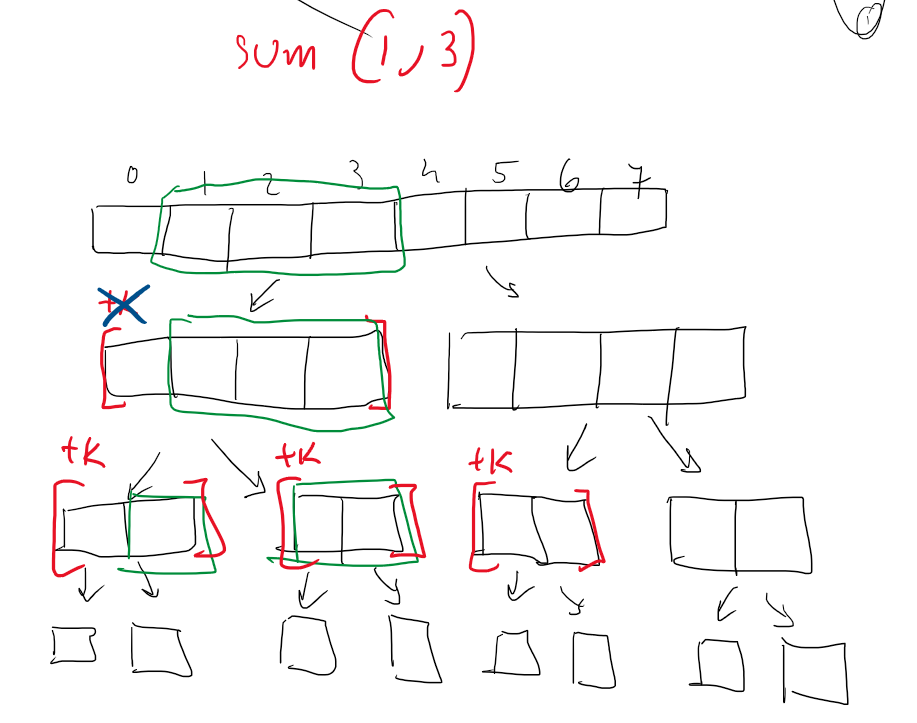 sum (1, 3)
0 1 2 3 4 5 6 7
+K
+K +K +K
1